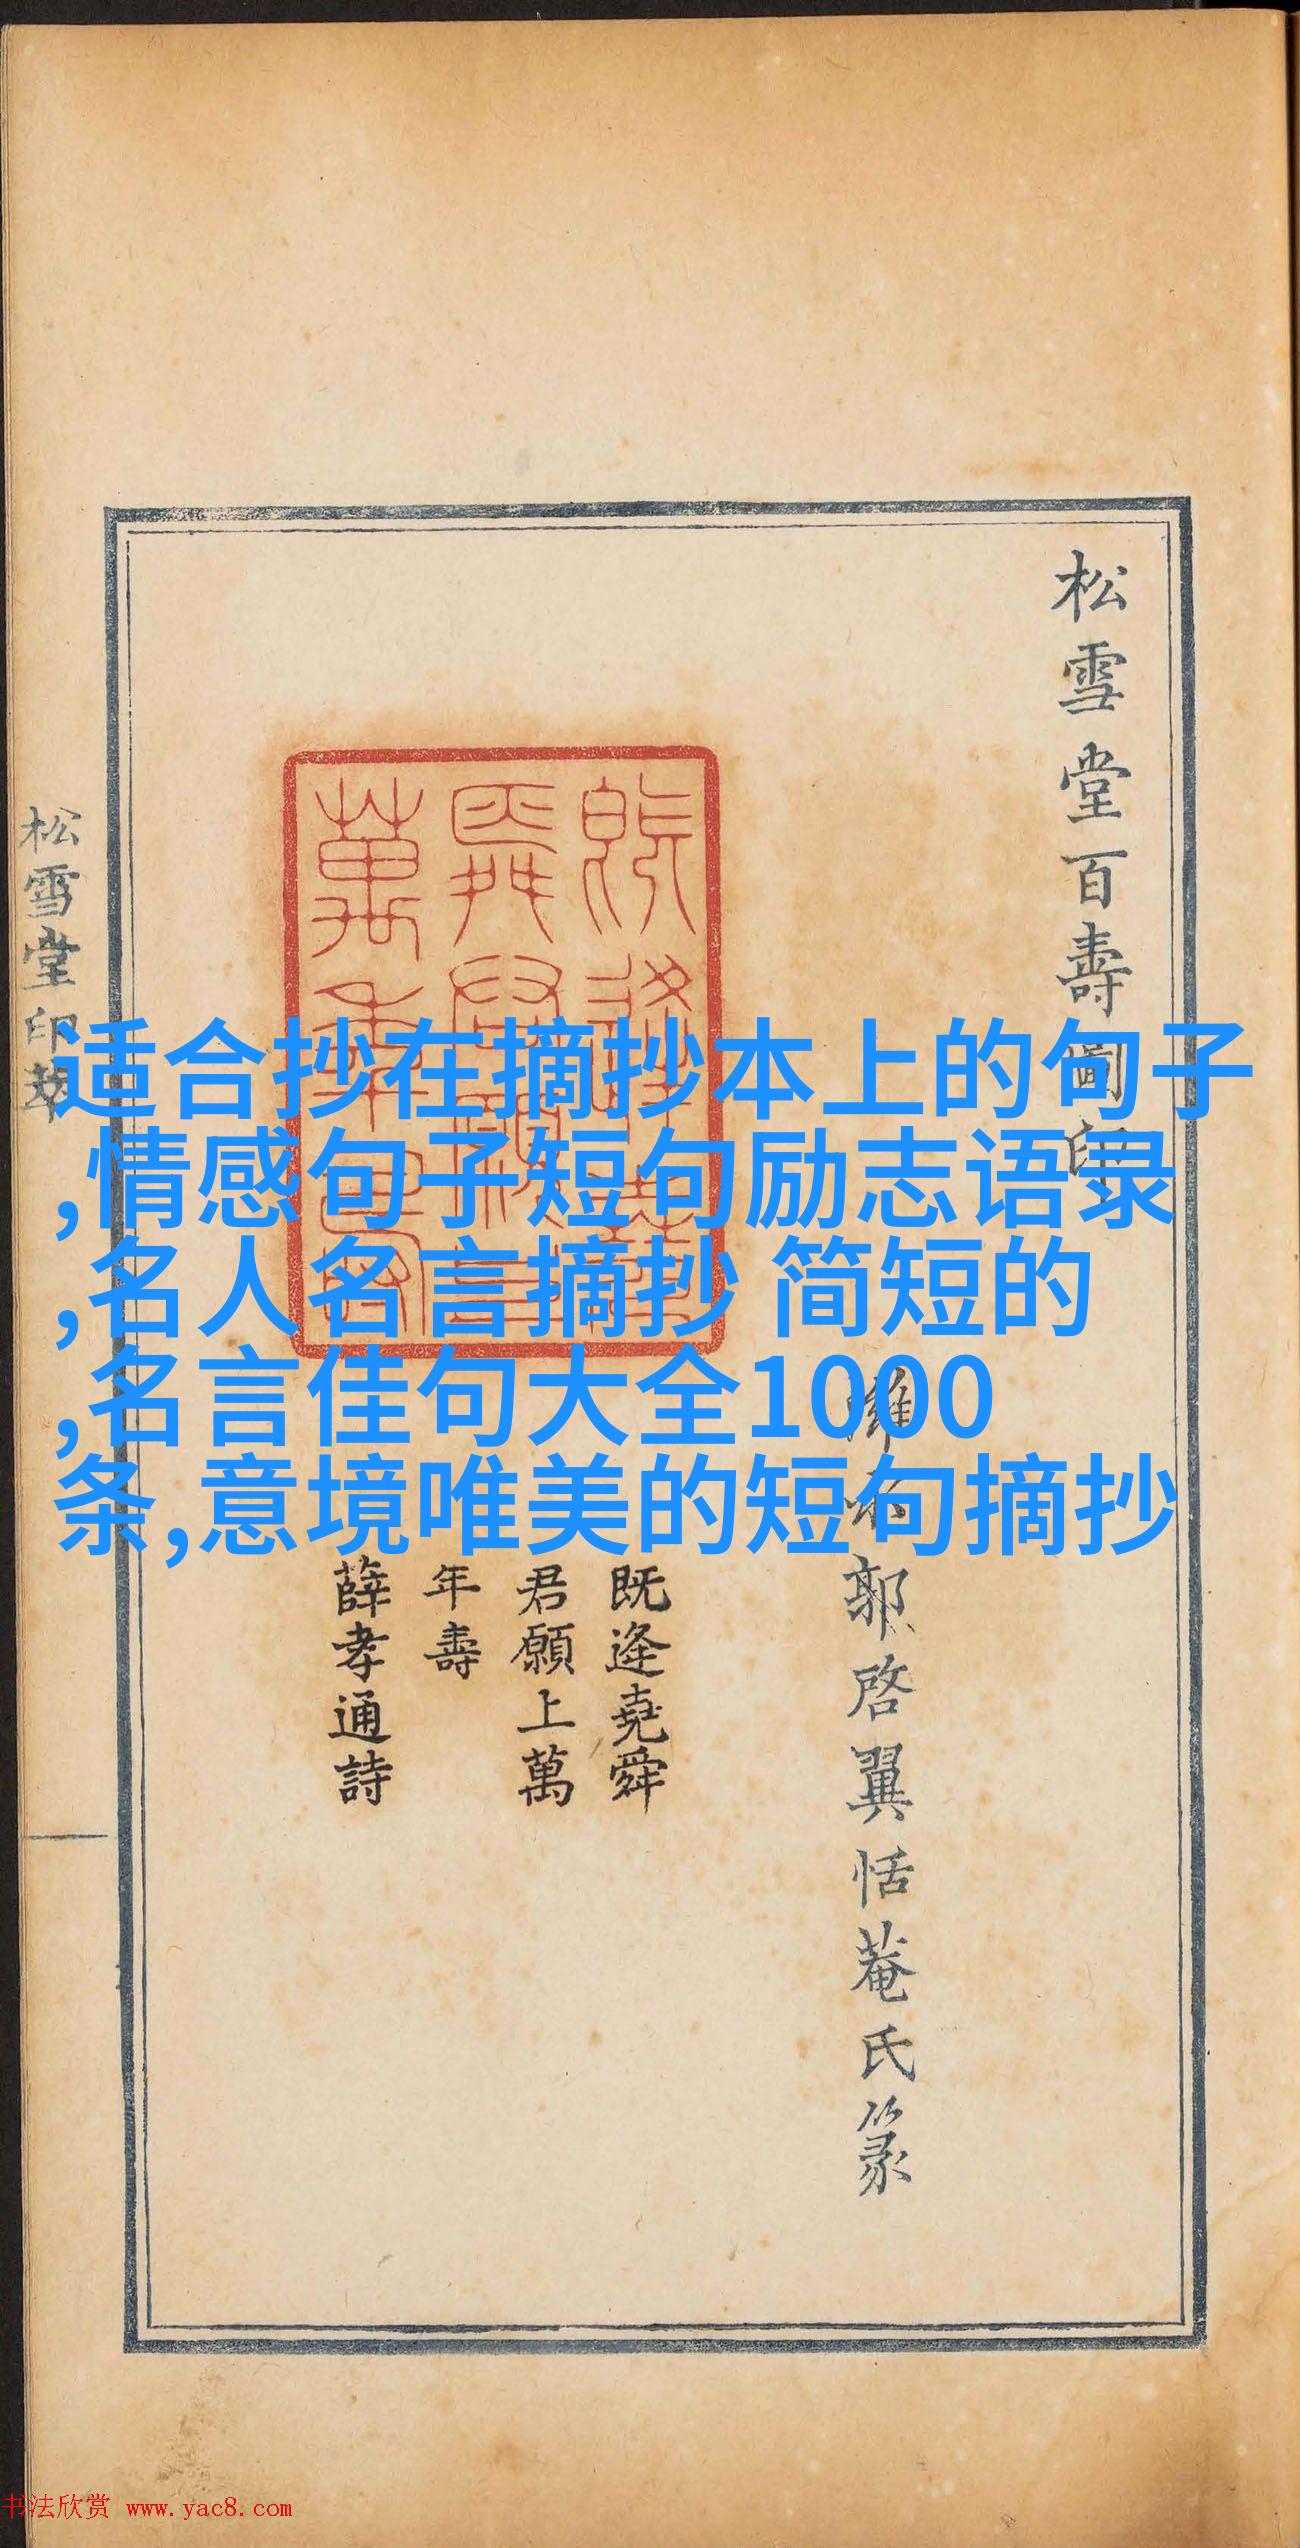 松雪堂百壽圖印
郭啓翼恬菴氏篆
既逢堯舜
君願上萬
年壽
薛孝通詩
松雪堂印萃
适合抄在摘抄本上的句子
,情感句子短句励志语录
,名人名言摘抄 简短的
,名言佳句大全1000
条,意境唯美的短句摘抄
书法欣赏 www.yac8.com